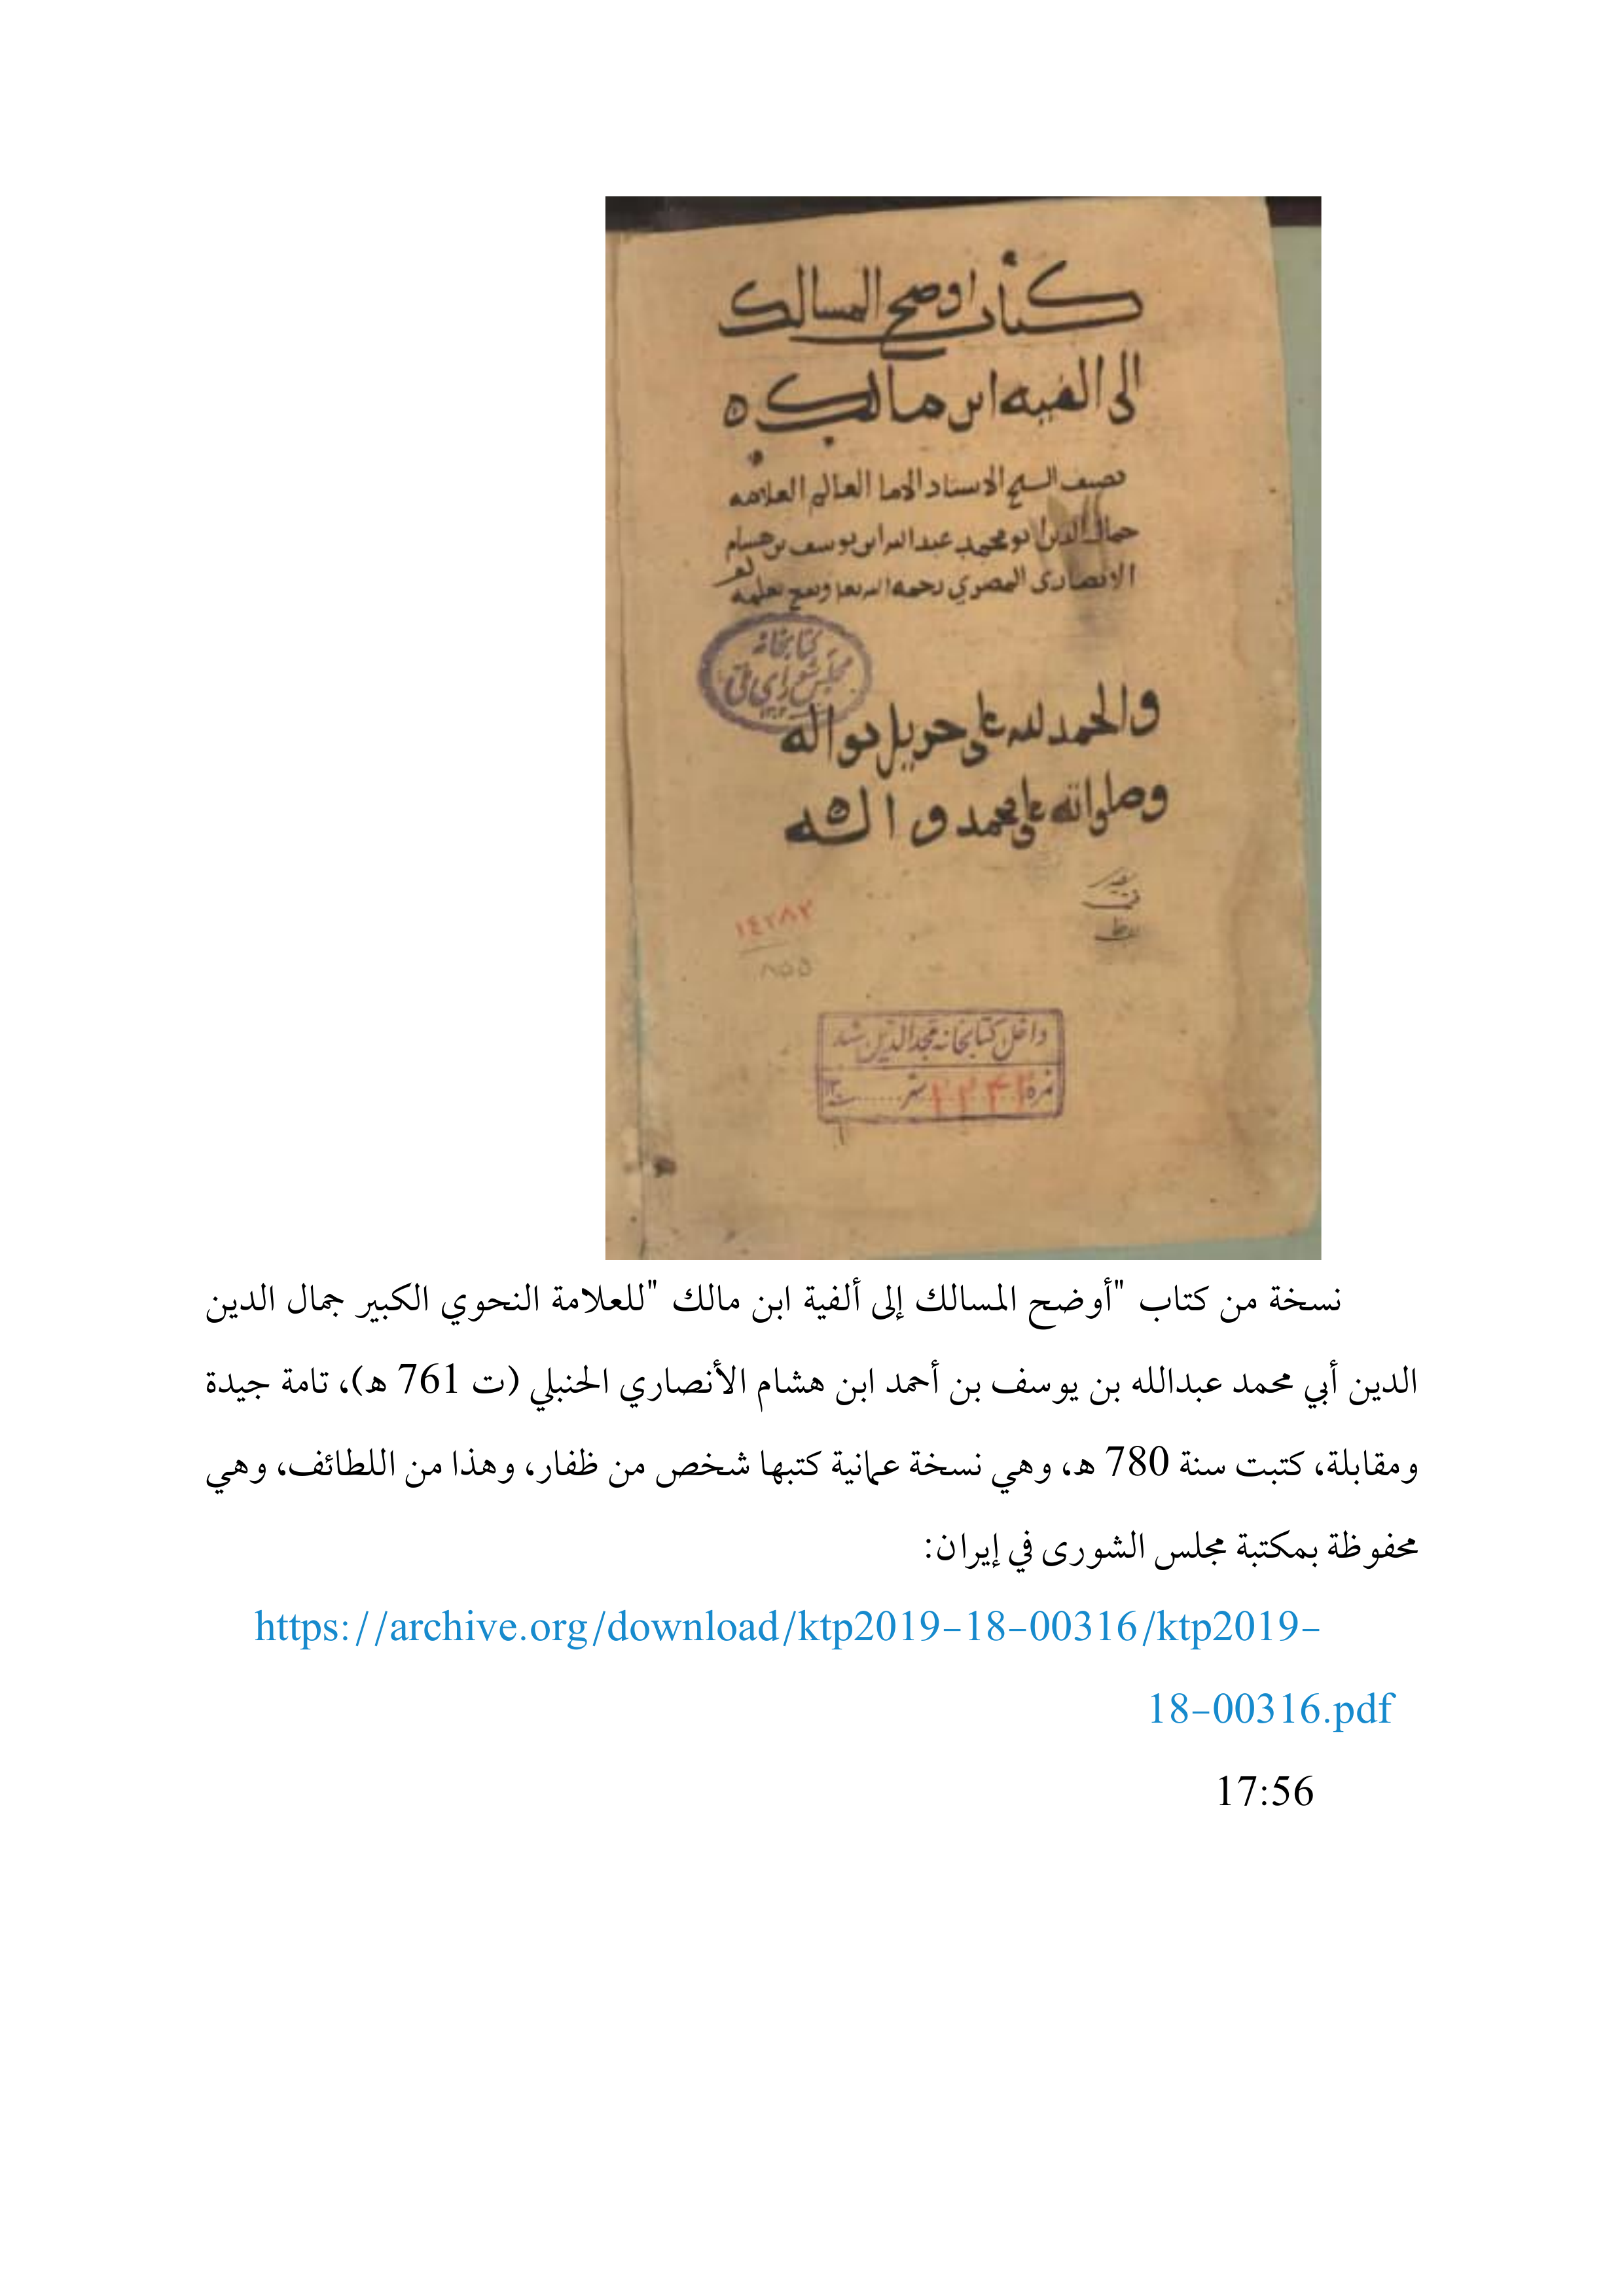 كتاب اوضح المسالك
الى الفيه ابن مالك ه
تصنيف الشيخ الاستاد الاما العالم العلامه
جمال الدين ابو محمد عبد الله ابن يوسف بن هشام
الانصارى المصري رحمه الله تعا ونفع بعلمه
كتابخانه
مجلس شوراى ملى
والحمد لله على جزيل نواله
وصلواته على محمد واله
١٤٢٨٢
٨٥٥
داخل كتابخانه مجدالدين شد
نمره
نسخة من كتاب "أوضح المسالك إلى ألفية ابن مالك "للعلامة النحوي الكبير جمال الدين
الدين أبي محمد عبدالله بن يوسف بن أحمد ابن هشام الأنصاري الحنبلي (ت 761 هـ)، تامة جيدة
ومقابلة، كتبت سنة 780 هـ، وهي نسخة عمانية كتبها شخص من ظفار، وهذا من اللطائف، وهي
محفوظة بمكتبة مجلس الشورى في إيران:
https://archive.org/download/ktp2019-18-00316/ktp2019-
18-00316.pdf
17:56